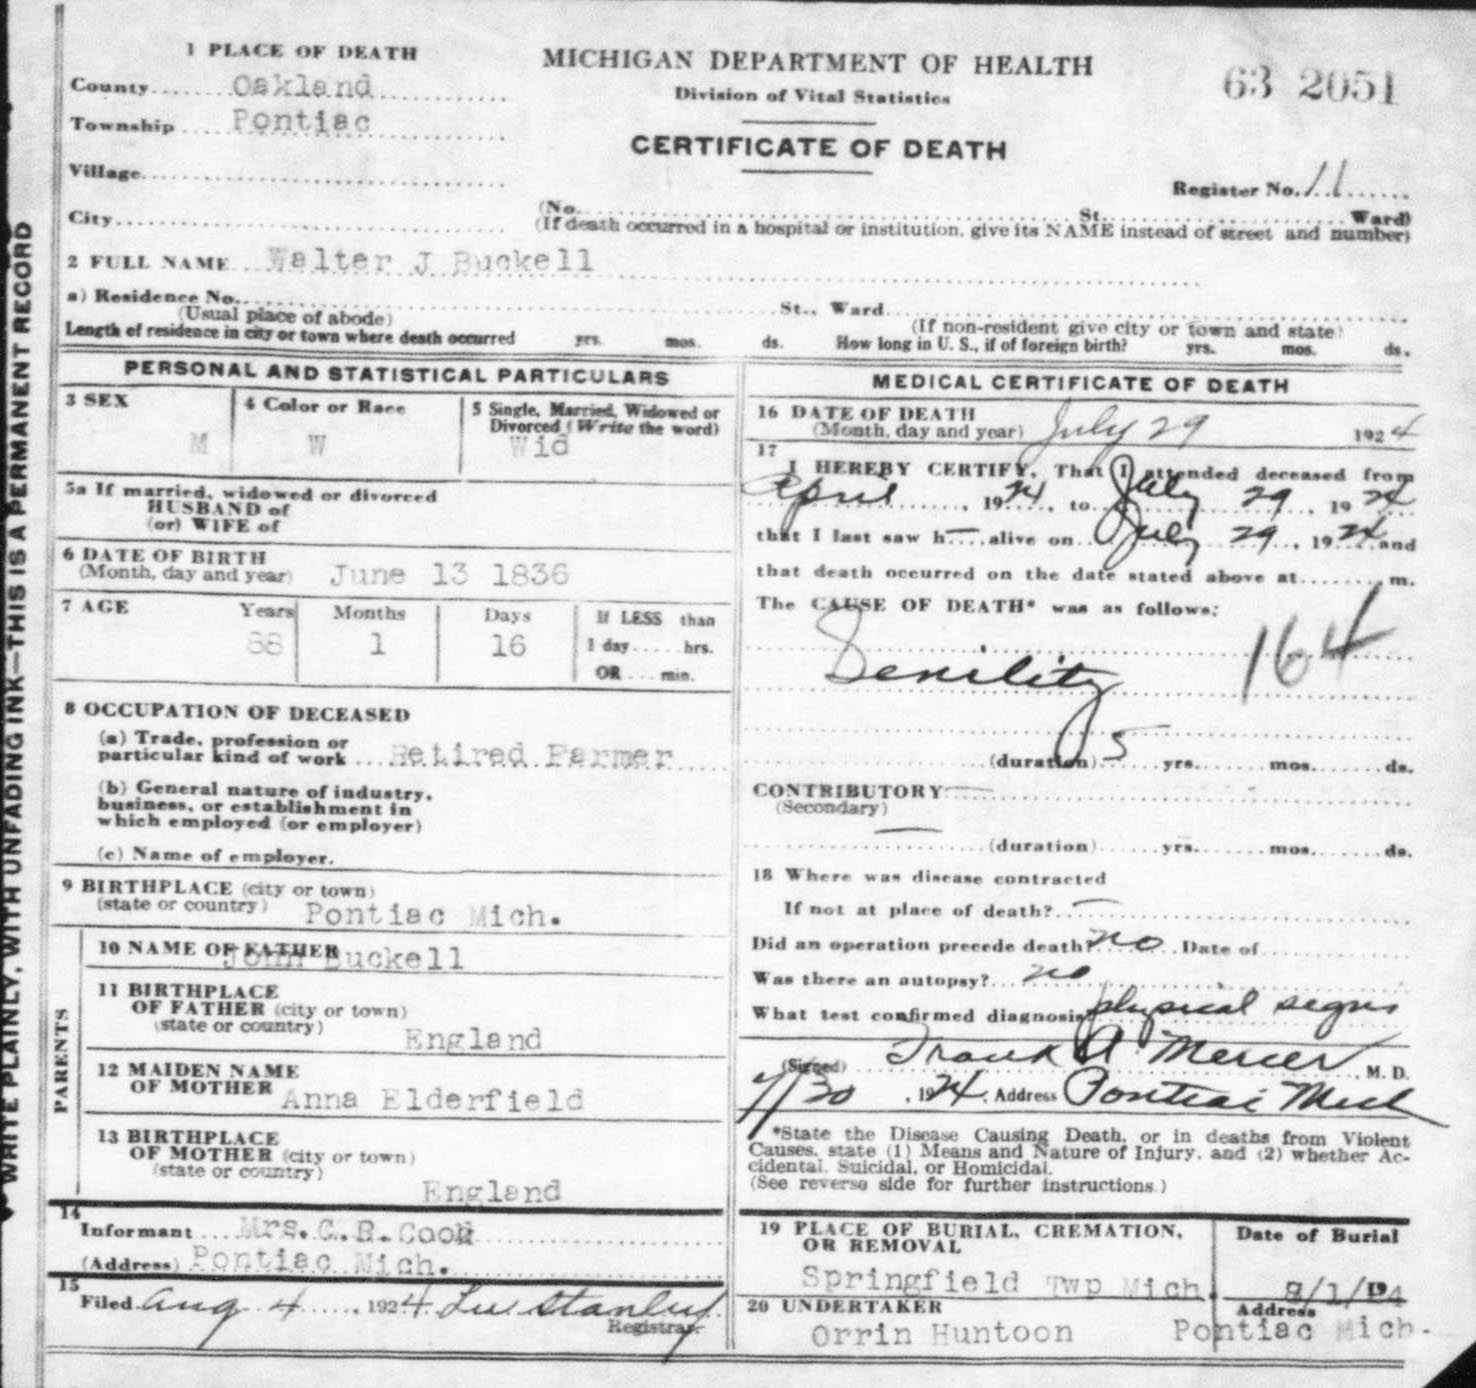 WRITE PLAINLY, WITH UNFADING INK—THIS IS A PERMANENT RECORD
1 PLACE OF DEATH
County Oakland
Township Pontiac
Village
City
MICHIGAN DEPARTMENT OF HEALTH
Division of Vital Statistics
CERTIFICATE OF DEATH
63 2051
Register No. 11
(No. St. Ward)
(If death occurred in a hospital or institution, give its NAME instead of street and number)
2 FULL NAME Walter J Buckell
a) Residence No. St., Ward
(Usual place of abode) (If non-resident give city or town and state)
Length of residence in city or town where death occurred yrs. mos. ds. How long in U. S., if of foreign birth? yrs. mos. ds.
PERSONAL AND STATISTICAL PARTICULARS
3 SEX M
4 Color or Race W
5 Single, Married, Widowed or
Divorced (Write the word)
Wid
5a If married, widowed or divorced
HUSBAND of
(or) WIFE of
6 DATE OF BIRTH
(Month, day and year) June 13 1836
7 AGE Years Months Days If LESS than
88 1 16 1 day hrs.
OR min.
8 OCCUPATION OF DECEASED
(a) Trade, profession or
particular kind of work Retired Farmer
(b) General nature of industry,
business, or establishment in
which employed (or employer)
(c) Name of employer.
9 BIRTHPLACE (city or town)
(state or country) Pontiac Mich.
PARENTS
10 NAME OF FATHER
John Buckell
11 BIRTHPLACE
OF FATHER (city or town)
(state or country)
England
12 MAIDEN NAME
OF MOTHER Anna Elderfield
13 BIRTHPLACE
OF MOTHER (city or town)
(state or country)
England
14
Informant Mrs. C. R. Cook
(Address) Pontiac Mich.
15
Filed Aug 4, 1924 Stanley
Registrar.
MEDICAL CERTIFICATE OF DEATH
16 DATE OF DEATH
(Month, day and year) July 29 1924
17
I HEREBY CERTIFY, That I attended deceased from
April, 1924, to July 29, 1924
that I last saw h— alive on July 29, 1924 and
that death occurred on the date stated above at m.
The CAUSE OF DEATH* was as follows:
Senility 164
(duration) 5 yrs. mos. ds.
CONTRIBUTORY —
(Secondary)
— (duration) yrs. mos. ds.
18 Where was disease contracted
If not at place of death? —
Did an operation precede death? no Date of
Was there an autopsy? no
What test confirmed diagnosis physical signs
(Signed) Frank A. Mercer, M. D.
7/30, 1924, Address Pontiac Mich
*State the Disease Causing Death, or in deaths from Violent
Causes, state (1) Means and Nature of Injury, and (2) whether Ac-
cidental, Suicidal, or Homicidal.
(See reverse side for further instructions.)
19 PLACE OF BURIAL, CREMATION,
OR REMOVAL
Springfield Twp Mich.
Date of Burial
8/1/1924
20 UNDERTAKER
Orrin Huntoon
Address
Pontiac Mich.